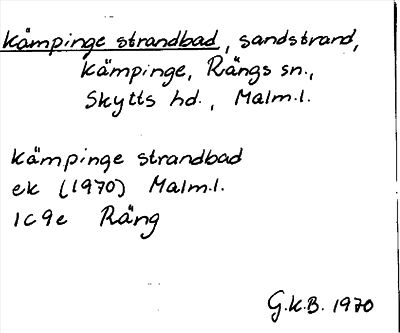 Kämpinge strandbad, sandstrand,
Kämpinge, Rängs sn.,
Skytts hd., Malm.l.
Kämpinge strandbad
ek (1970) Malm.l.
1C9e Räng
G.K.B. 1970